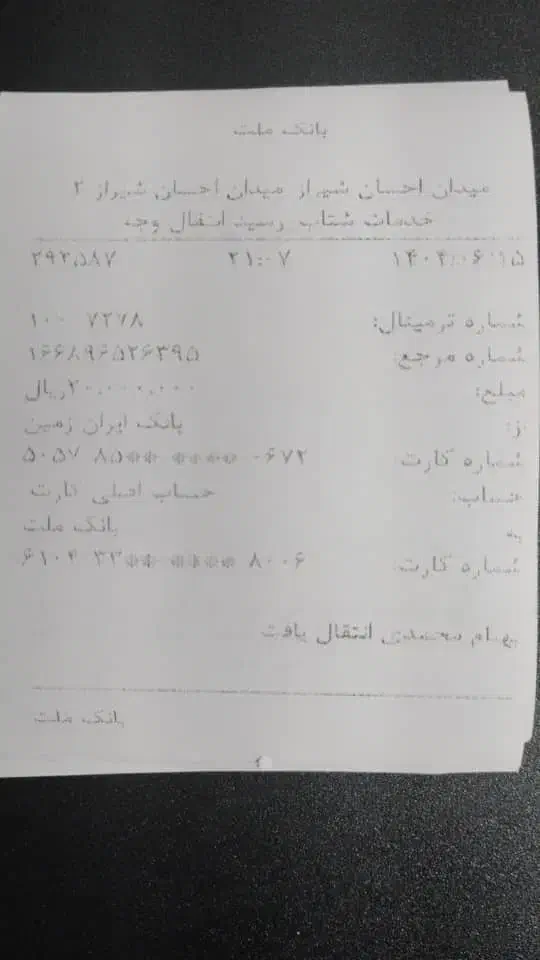 بانک ملت
میدان احسان شیراز میدان احسان شیراز ۲
خدمات شتاب رسید انتقال وجه
۱۴۰۴/۰۶/۱۵ ۲۱:۰۷ ۲۹۲۵۸۷
شماره ترمینال: ۷۲۷۸
شماره مرجع: ۱۶۶۸۹۶۵۲۶۳۹۵
مبلغ: ۲۰,۰۰۰,۰۰۰ریال
از: بانک ایران زمین
شماره کارت: ۵۰۵۷ ۸۵** **** ۰۶۷۲
حساب: حساب اصلی کارت
به بانک ملت
شماره کارت: ۶۱۰۴ ۳۳** **** ۸۰۰۶
محمدی انتقال یافت
بانک ملت